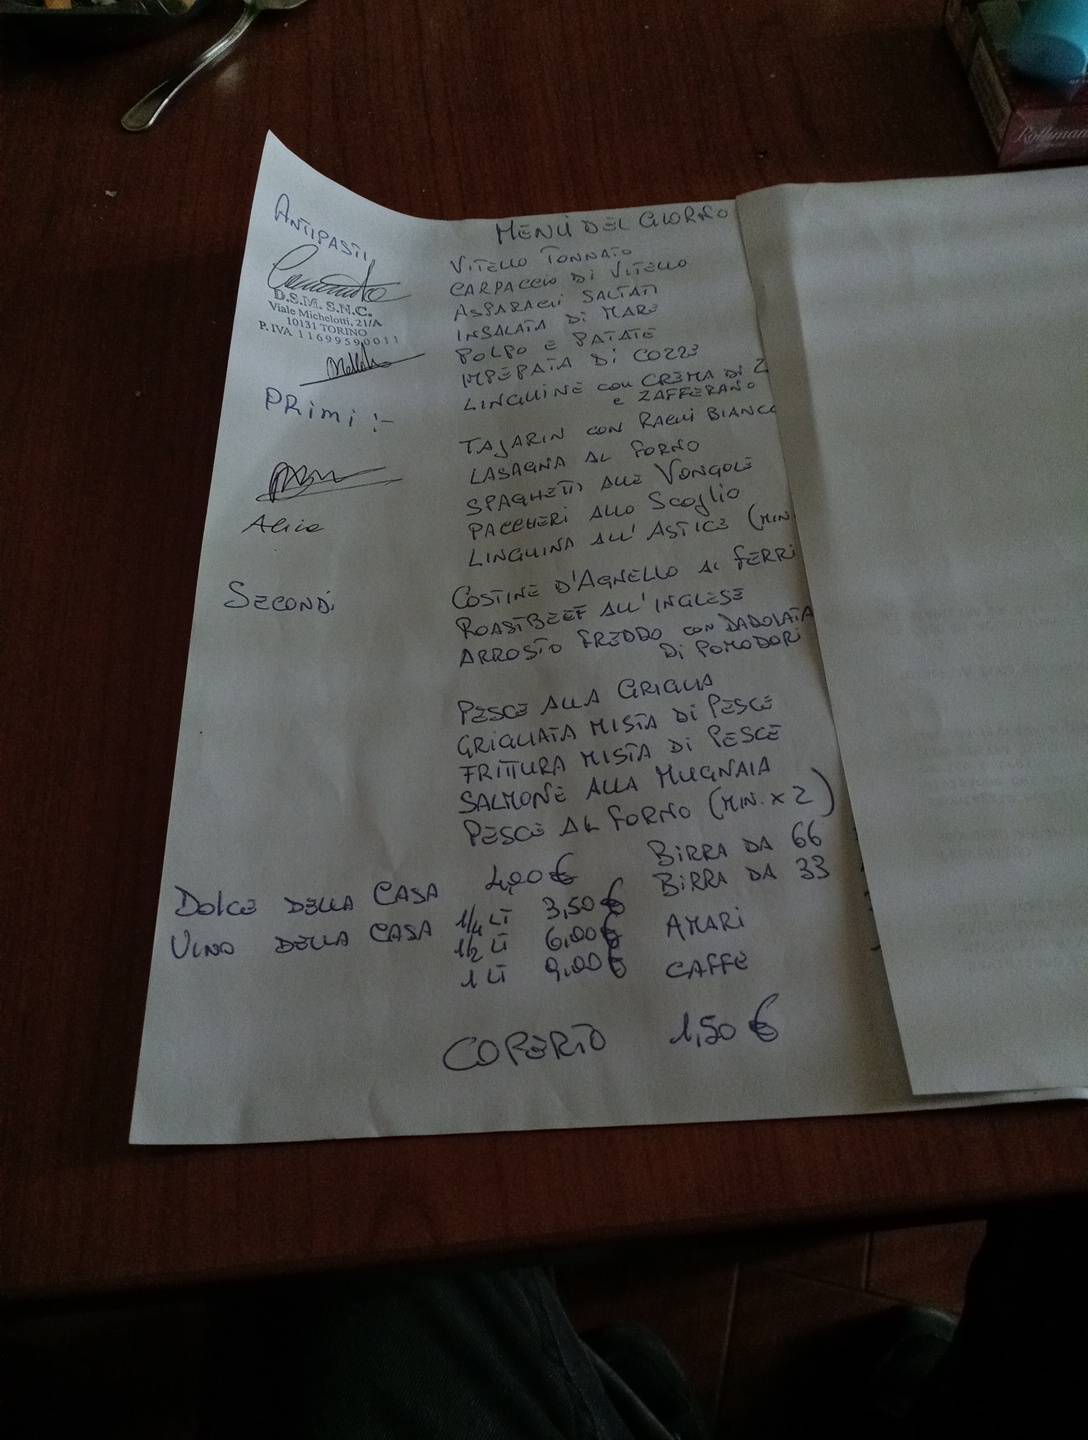 ANTIPASTI
MENÙ DEL GIORNO
VITELLO TONNATO
CARPACCIO DI VITELLO
ASPARAGI SALTATI
INSALATA DI MARE
POLPO E PATATE
IMPEPATA DI COZZE
D.S.M. S.N.C.
Viale Michelotti, 21/A
10131 TORINO
P. IVA 11699590011
PRimi :-
LINGUINE CON CREMA DI
E ZAFFERANO
TAJARIN CON RAGUI BIANCO
LASAGNA AL FORNO
SPAGHETTI ALLE VONGOLE
PACCHERI ALLO SCOGLIO
LINGUINA ALL'ASTICE (MIN.
Alice
SECONDI
COSTINE D'AGNELLO AI FERRI
ROASTBEEF ALL'INGLESE
ARROSTO FREDDO CON DADOLATA
DI POMODORI
PESCE ALLA GRIGLIA
GRIGLIATA MISTA DI PESCE
FRITTURA MISTA DI PESCE
SALMONE ALLA MUGNAIA
PESCE AL FORNO (MIN. x 2)
DOLCE DELLA CASA 4,00 €
VINO DELLA CASA 1/4 LT 3,50 €
1/2 LT 6,00 €
1 LT 9,00 €
BIRRA DA 66
BIRRA DA 33
AMARI
CAFFE
COPERTO 1,50 €
Rothman